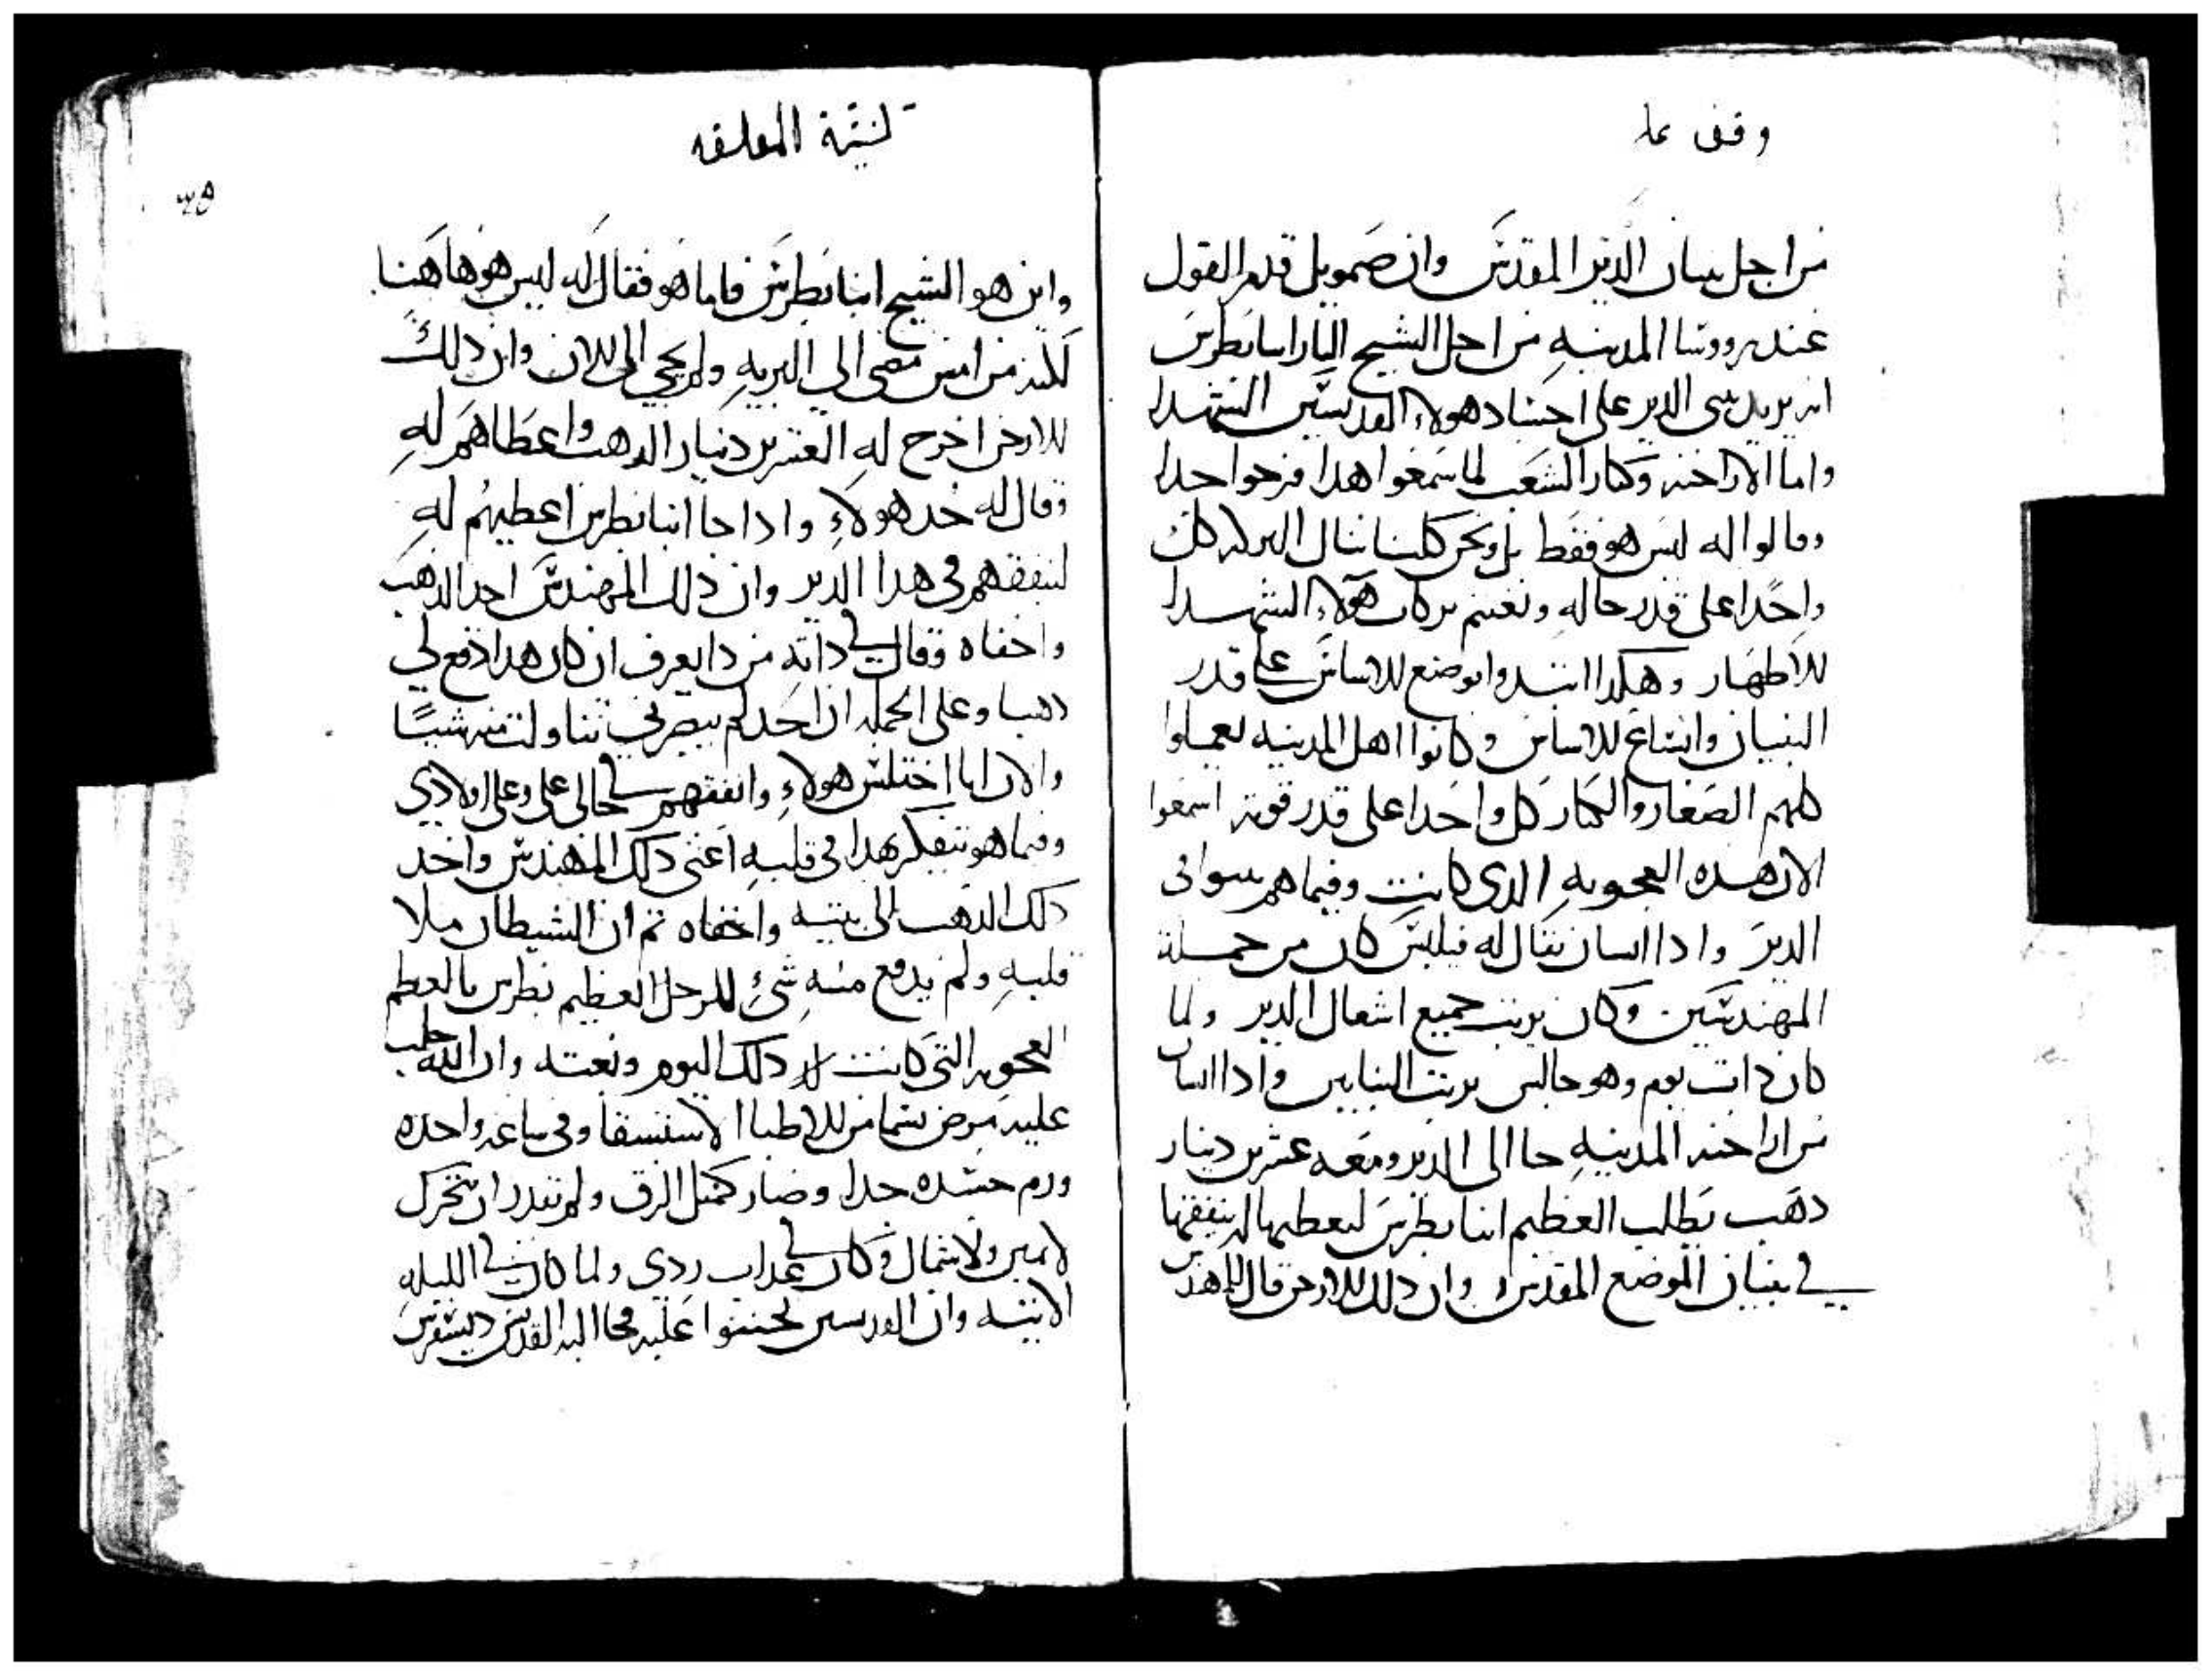 وقف على
من اجل بنيان الدير المقدس وان صمويل قدم القول
عند رووسا المدينه من اجل الشيخ البار انبا بطرس
انه يريد يبنى الدير على اجساد هولاء القديسين الشهدا
واما الاراخنه وكبار الشعب لما سمعوا هدا فرحوا جدا
وقالوا له ليس هو فقط بل ونحن كلنا ننال البركه كل
واحدا على قدر حاله ونغنم بركات هولاء الشهدا
الاطهار وهكدا ابتدوا بوضع الاساس على قدر
البنيان واتساع الاساس وكانوا اهل المدينه يعملوا
كلهم الصغار والكبار كل واحدا على قدر قوته اسمعوا
الان هده العجوبه الدى كانت وفيما هم يبنوا فى
الدير وادا انسان يقال له فيلبس كان من جملة
المهندسين وكان يرتب جميع اشعال الدير ولما
كان دات يوم وهو جالس يرتب البنايين وادا انسان
من اراخنه المدينه جا الى الدير ومعه عشرين دينار
دهب يطلب العظيم انبا بطرس ليعطيها له ينفقها
في بنيان الموضع المقدس وان دلك الارخن قال للمهندس
كنيسة المعلقه
واين هو الشيخ انبا بطرس فاما هو فقال له ليس هو هاهنا
لكنه من امس مضى الى البريه ولم يجي الى الان وان دلك
الارخن اخرج له العشرين دينار الدهب واعطاهم له
وقال له خد هولاء وادا جا انبا بطرس اعطيهم له
لينفقهم في هدا الدير وان دلك المهندس اخد الدهب
واخفاه وقال في داته من دا يعرف ان كان هدا دفع لي
دهبا وعلى الجمله ان احد لم يبصرني تناولت منه شيئا
والان انا اختلس هولاء وانفقهم في حالى على وعلى اولادي
وفيما هو يتفكر بهدا في قلبه اعنى دلك المهندس واخد
دلك الدهب الى بيته واخفاه تم ان الشيطان ملا
قلبه ولم يدفع منه شيء للرجل العظيم بطرس يا لعظم
العجوبه التى كانت لان دلك اليوم وبعته وان الله جلب
عليه مرض يسما من الاطبا الاستسقا وفى ساعه واحده
ورم جسده جدا وصار كمتل الزق ولم يقدر ان يتحرك
لا يمين ولا شمال وكان في عداب ردي ولما كان في الليله
الاتيه وان القديسين تحننوا عليه فجا اليه القديس